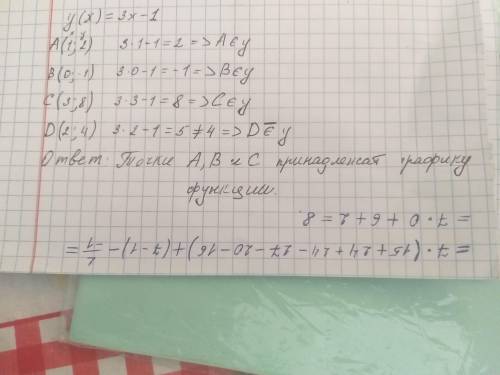 y(x)=3x-1
A(1;2) 3·1-1=2 => A∈y
B(0;-1) 3·0-1=-1 => B∈y
C(3;8) 3·3-1=8 => C∈y
D(2;4) 3·2-1=5≠4 => D∈̅y
Ответ: Точки A, B и C принадлежат графику
функции.
= 7·(15+24+24-27-20-16)+(7-1)-
= 7·0+6+2=8.